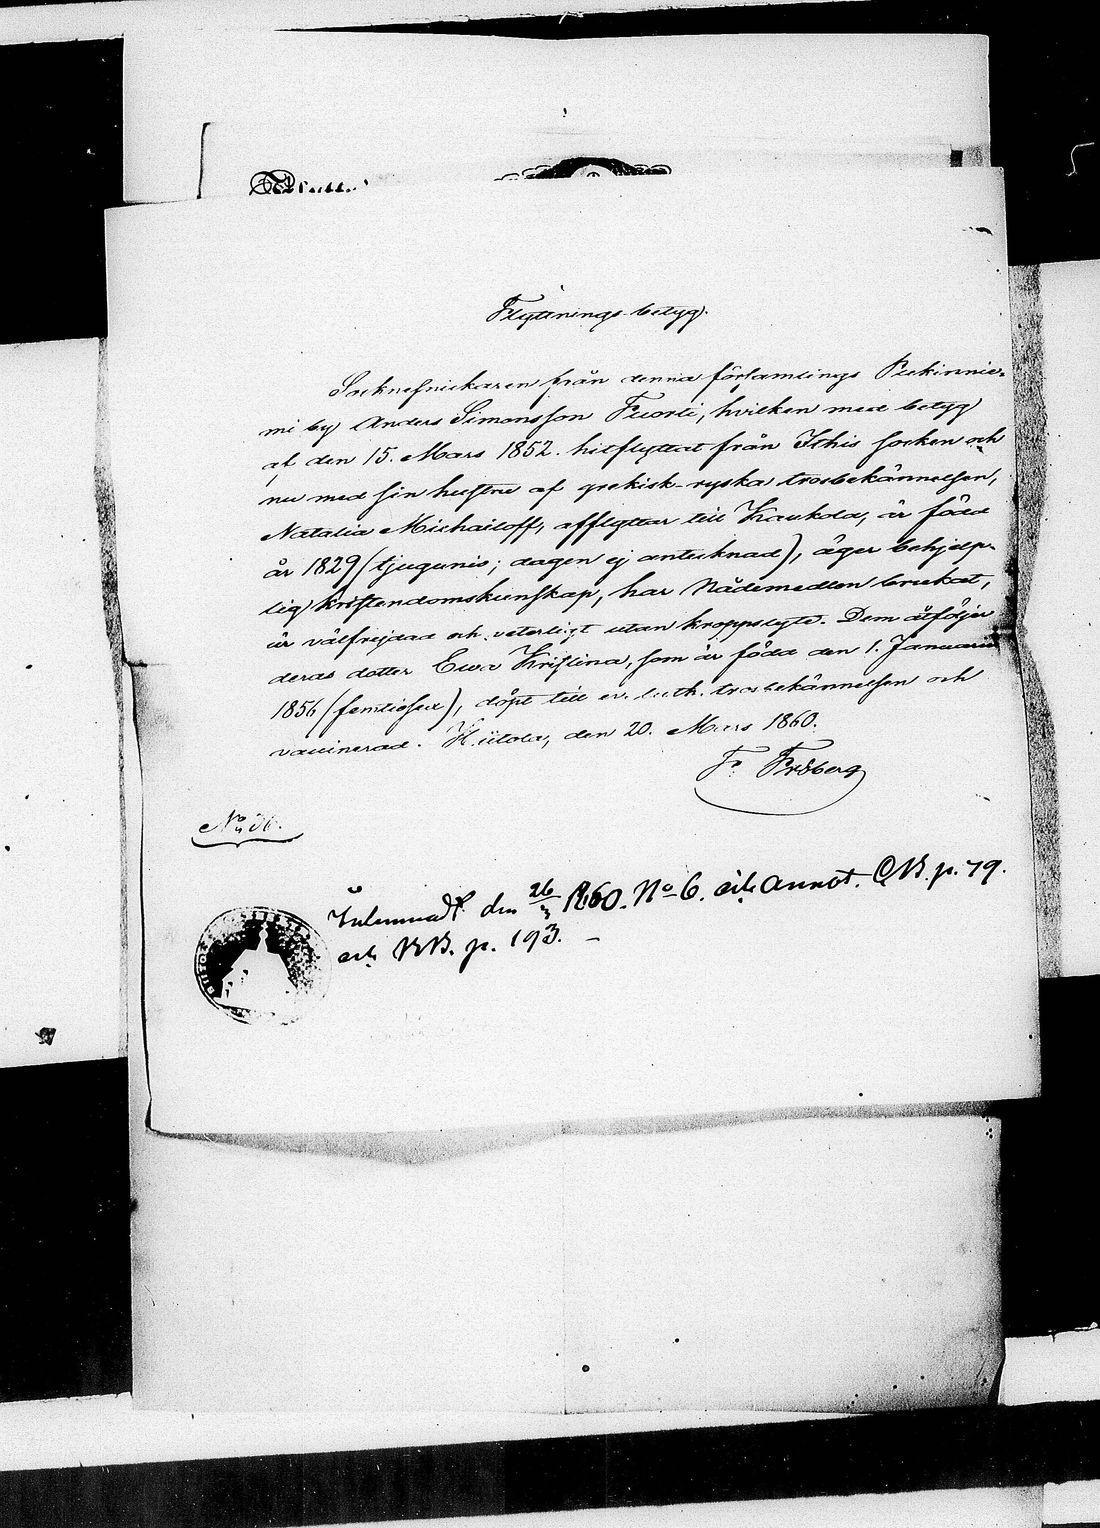 Flyttnings-betyg.
Socknesnickaren från denna församlings Pukinnie-
mi by Anders Simonsson Tuorli, hvilken med betyg
af den 15. Mars 1852. hitflyttat från Ithis socken och
nu med sin hustru af grekisk-ryska trosbekännelsen,
Natalia Michailoff, afflyttar till Kaukola, är född
år 1829 (tjugunio; dagen ej antecknad), äger behjelp-
lig kristendomskunskap, har Nådemedlen brukat,
är välfrejdad och veterligt utan kroppslyte. Dem åtföljer
deras dotter Ewa Kristina, som är född den 1. Januarii
1856 (femtiosex), döpt till ev. luth. trosbekännelsen och
vaccinerad. Hiitola, den 20. Mars 1860.
Fr. Fröberg
No
Inlemnadt den 26/3 1860. No 6. och annot. C.B. p. 79.
och BB. p. 193. –